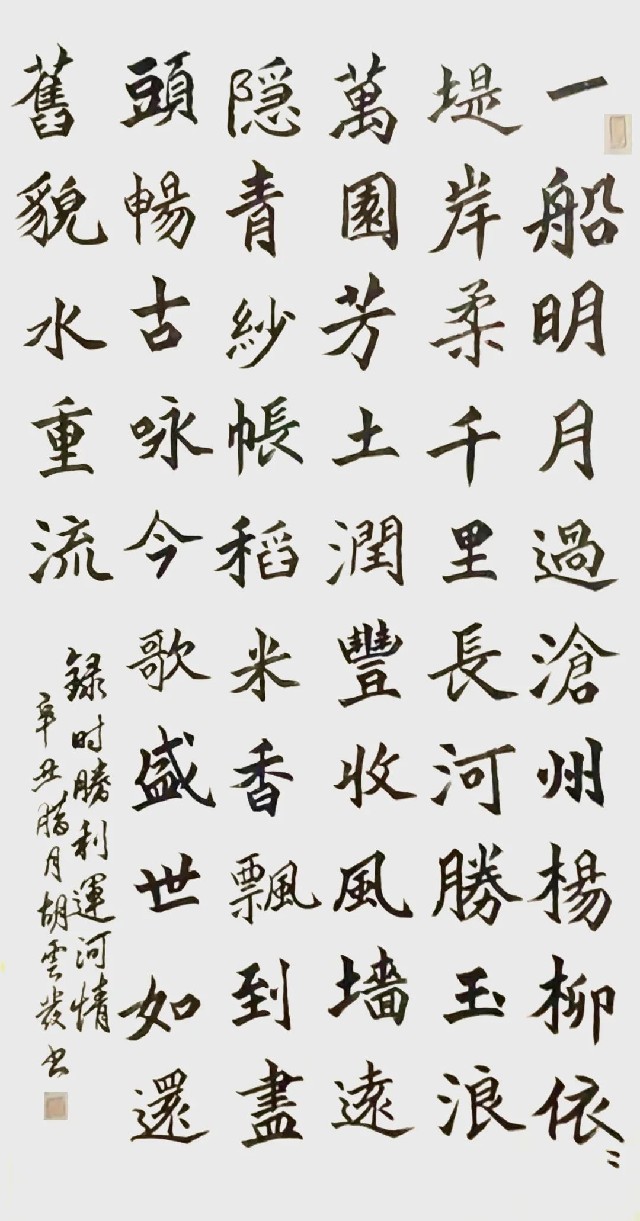 一船明月過滄州楊柳依〻
堤岸柔千里長河勝玉浪
萬園芳土潤豐收風墙遠
隱青紗帳稻米香飄到盡
頭暢古咏今歌盛世如還
舊貌水重流
録时勝利運河情
辛丑腊月胡雲發书